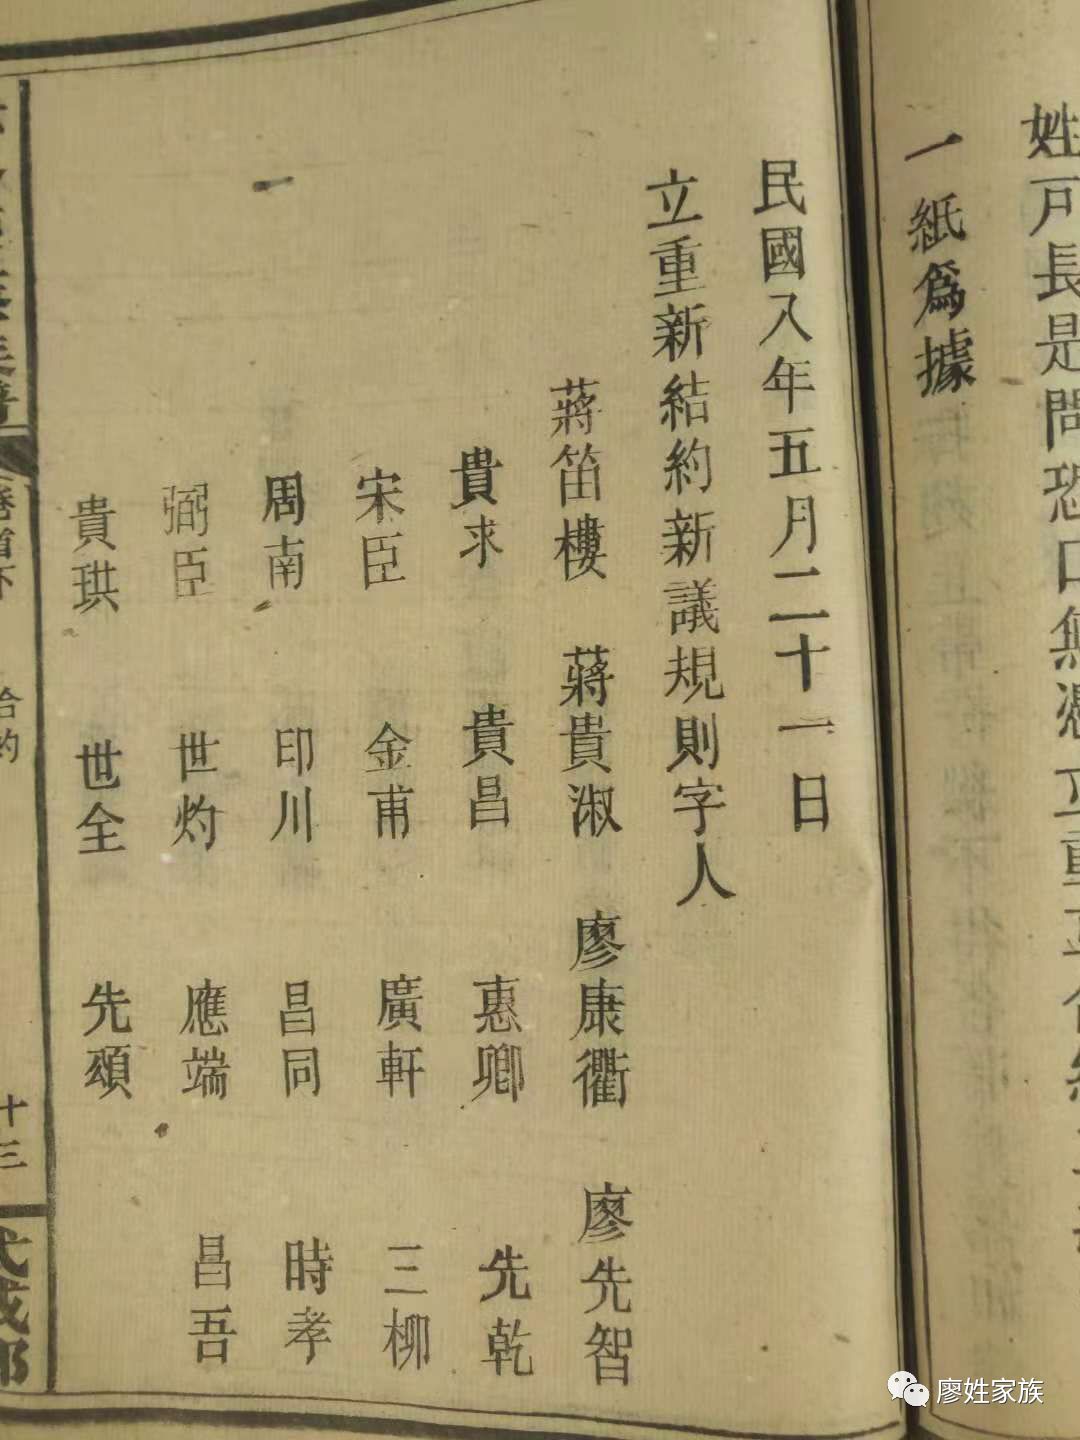 姓可長是問恐口無憑立重立合約
一紙爲據
民國八年五月二十一日
立重新結約新議規則字人
蔣笛樓 蔣貴淑 廖康衢 廖先智
貴求 貴昌 惠卿 先乾
宋臣 金甫 廣軒 三柳
周南 印川 昌同 時孝
弼臣 世灼 應端 昌吾
貴珙 世全 先頌
卷首下 合約 十三
廖姓家族